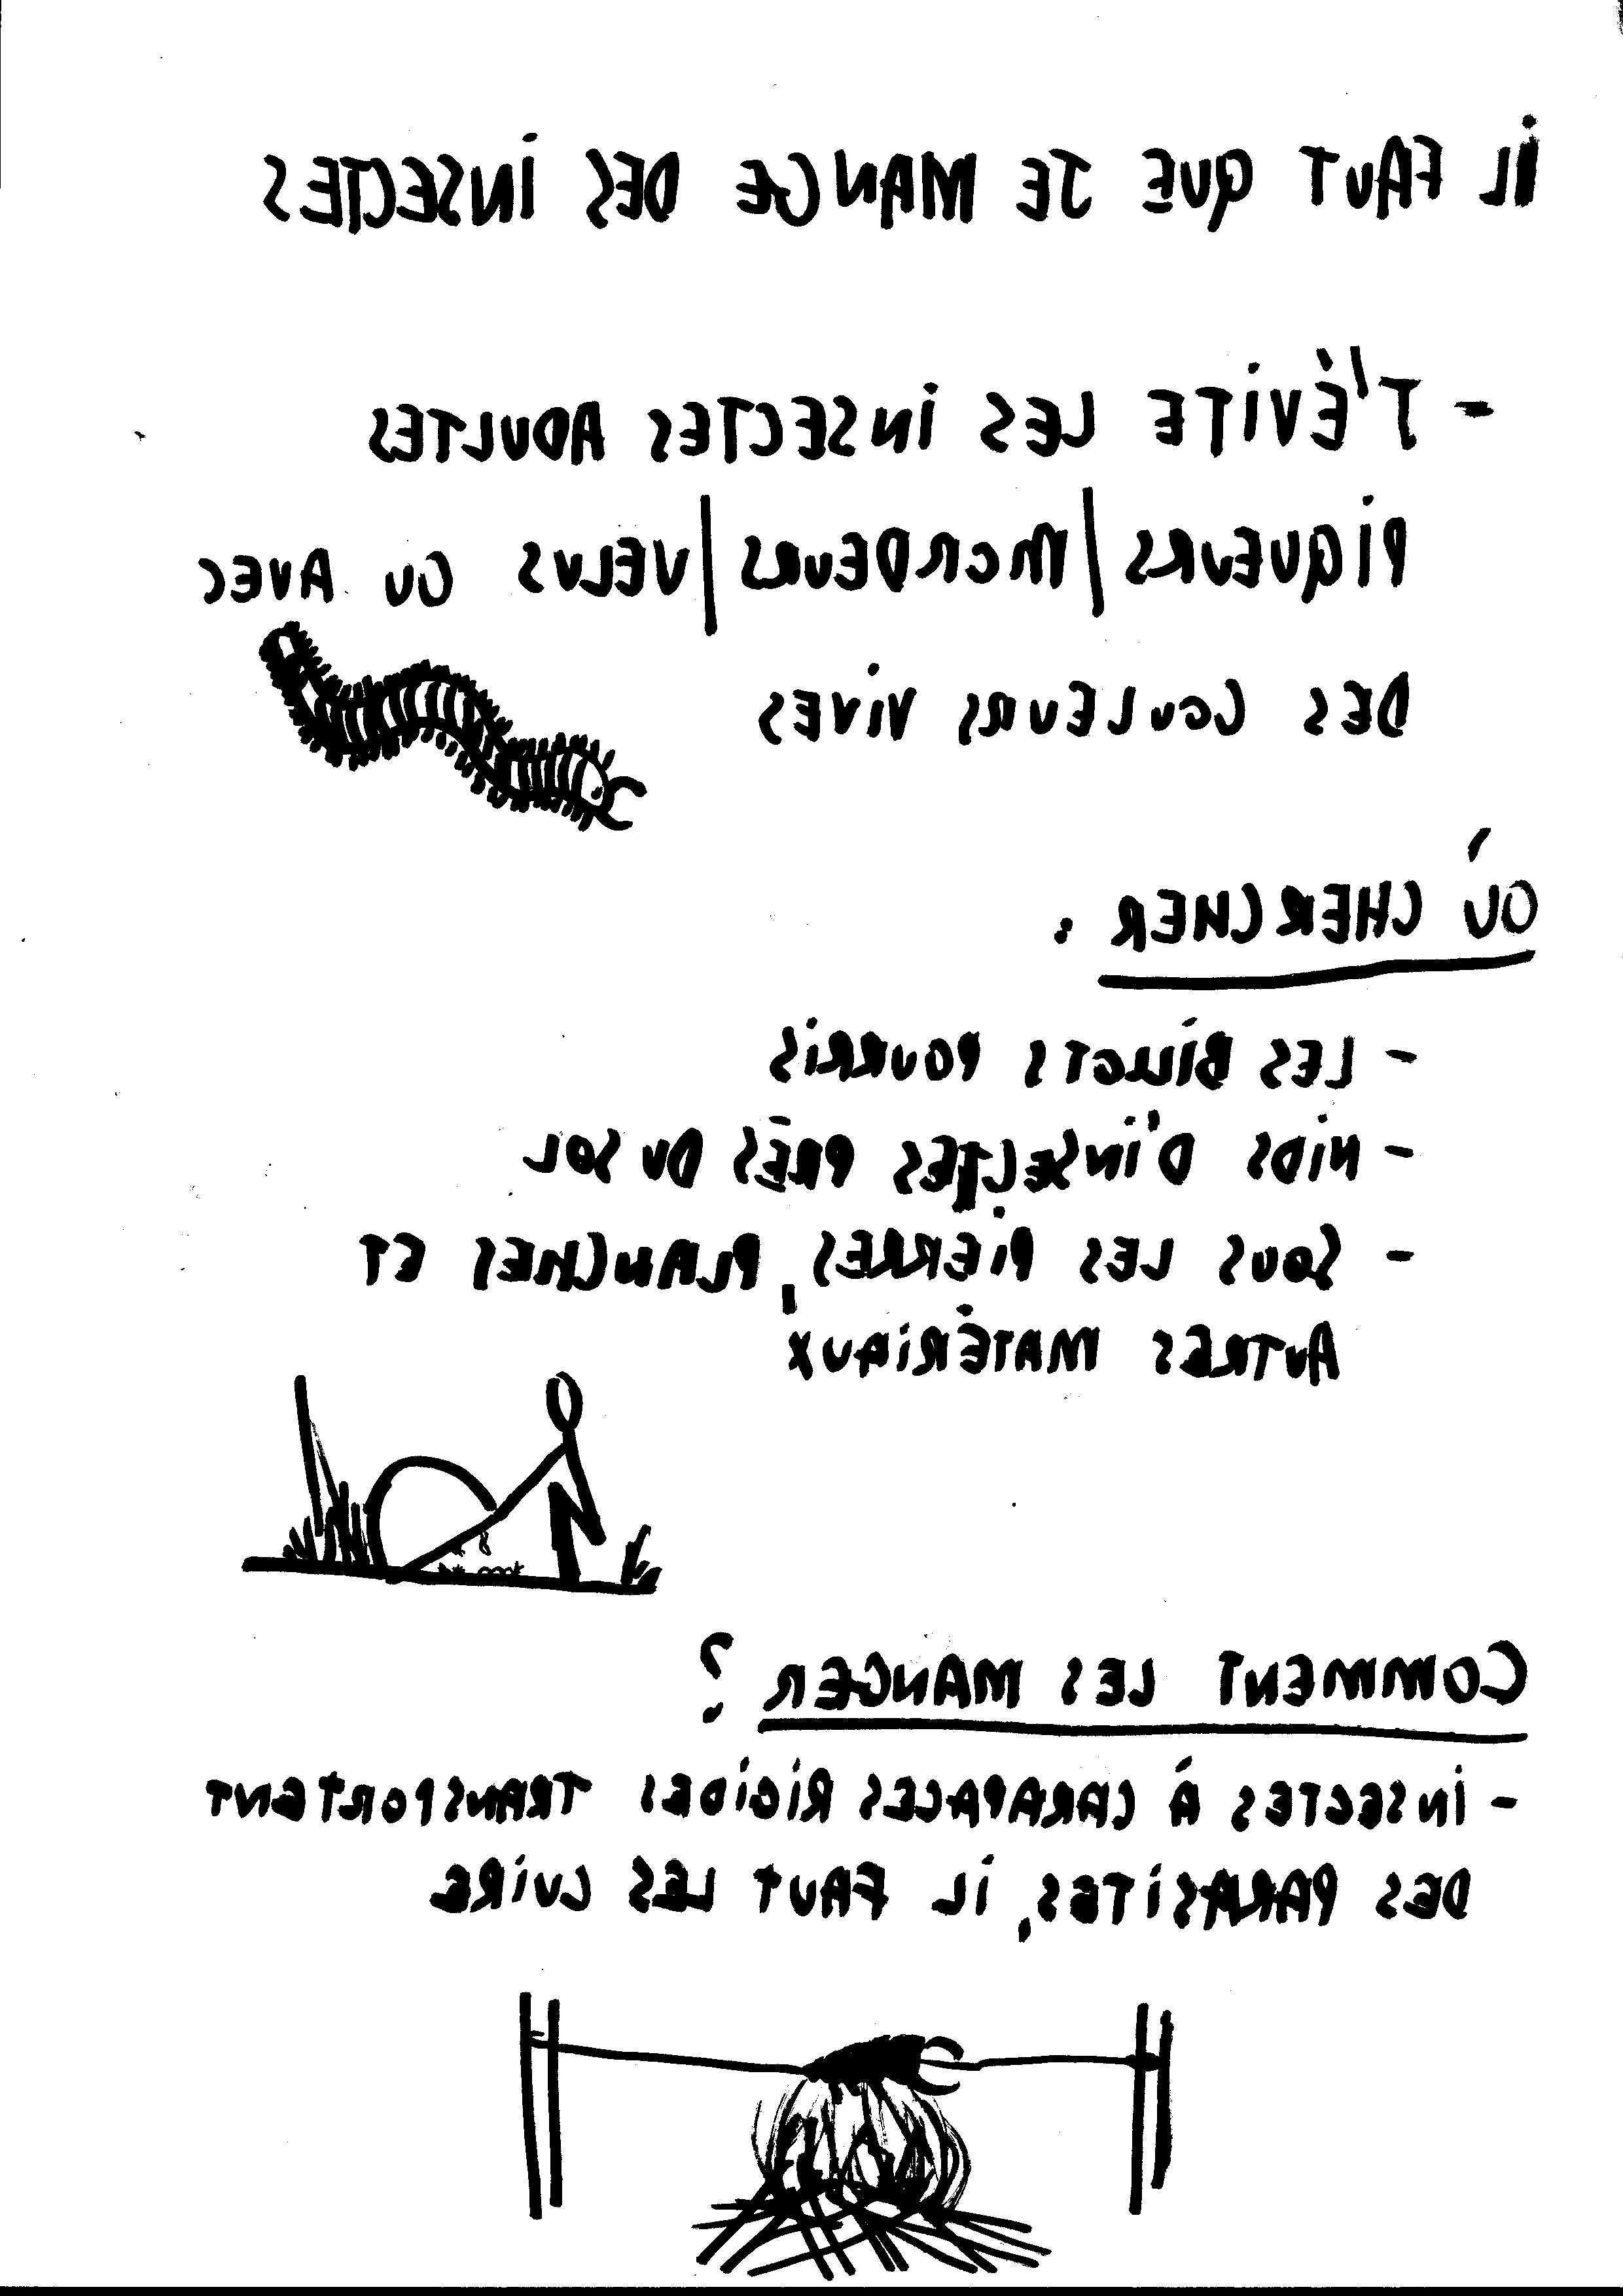 IL FAUT QUE JE MANGE DES INSECTES
- T'ÉVITE LES INSECTES ADULTES
PIQUEURS / MORDEURS / VELUS OU AVEC
DES COULEURS VIVES
OÙ CHERCHER :
- LES BILLOTS POURRIS
- NIDS D'INSECTES PRÈS DU SOL
- SOUS LES PIERRES, PLANCHES ET
AUTRES MATÉRIAUX
COMMENT LES MANGER ?
- INSECTES À CARAPACES RIGIDES TRANSPORTENT
DES PARASITES, IL FAUT LES CUIRE